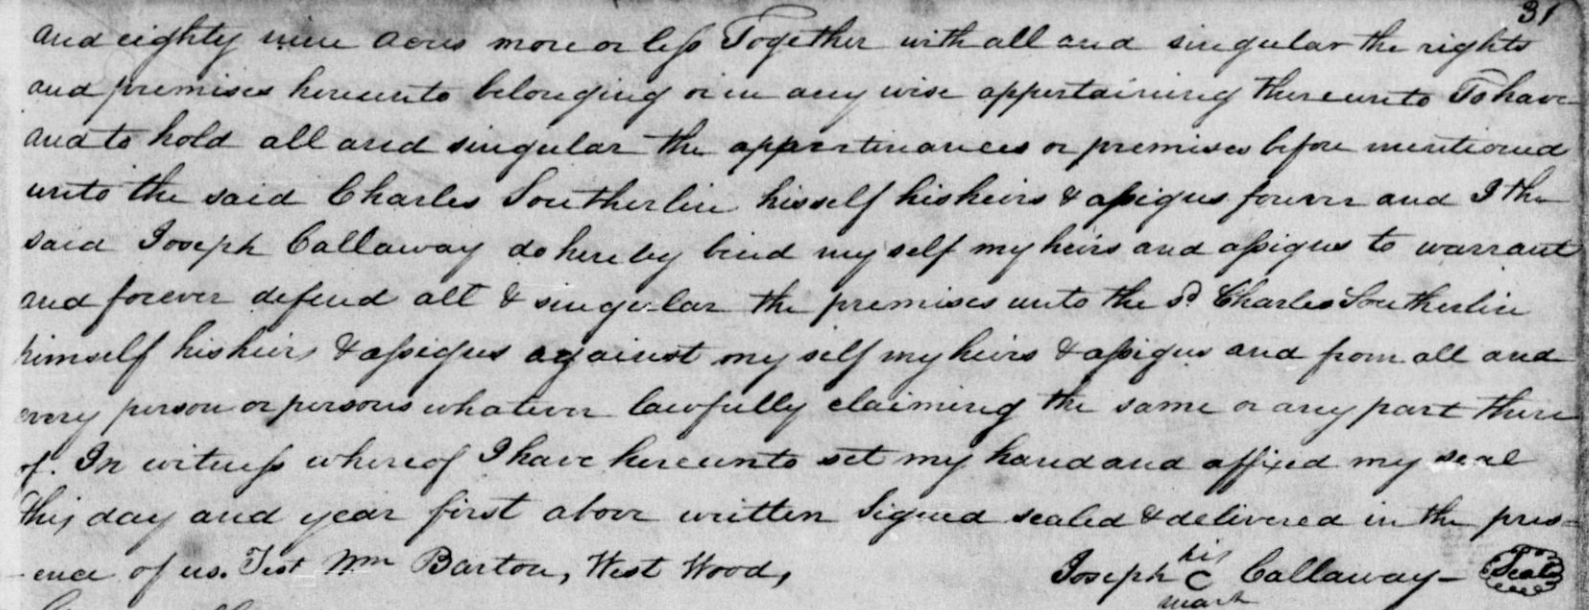 31
and eighty nine acres more or less Together with all and singular the rights
and premises hereunto belonging or in any wise appertaining thereunto To have
and to hold all and singular the appertinances or premises before mentioned
unto the said Charles Southerlin hisself his heirs & assigns forever and I the
said Joseph Callaway do hereby bind my self my heirs and assigns to warrant
and forever defend all & singular the premises unto the sd Charles Southerlin
himself his heirs & assigns against my self my heirs & assigns and from all and
every person or persons whatever lawfully claiming the same or any part there
of. In witness whereof I have hereunto set my hand and affixed my seal
this day and year first above written Signed sealed & delivered in the pres=
-ence of us. Test Wm Barton, West Wood,
Joseph his C mark Callaway - Seal